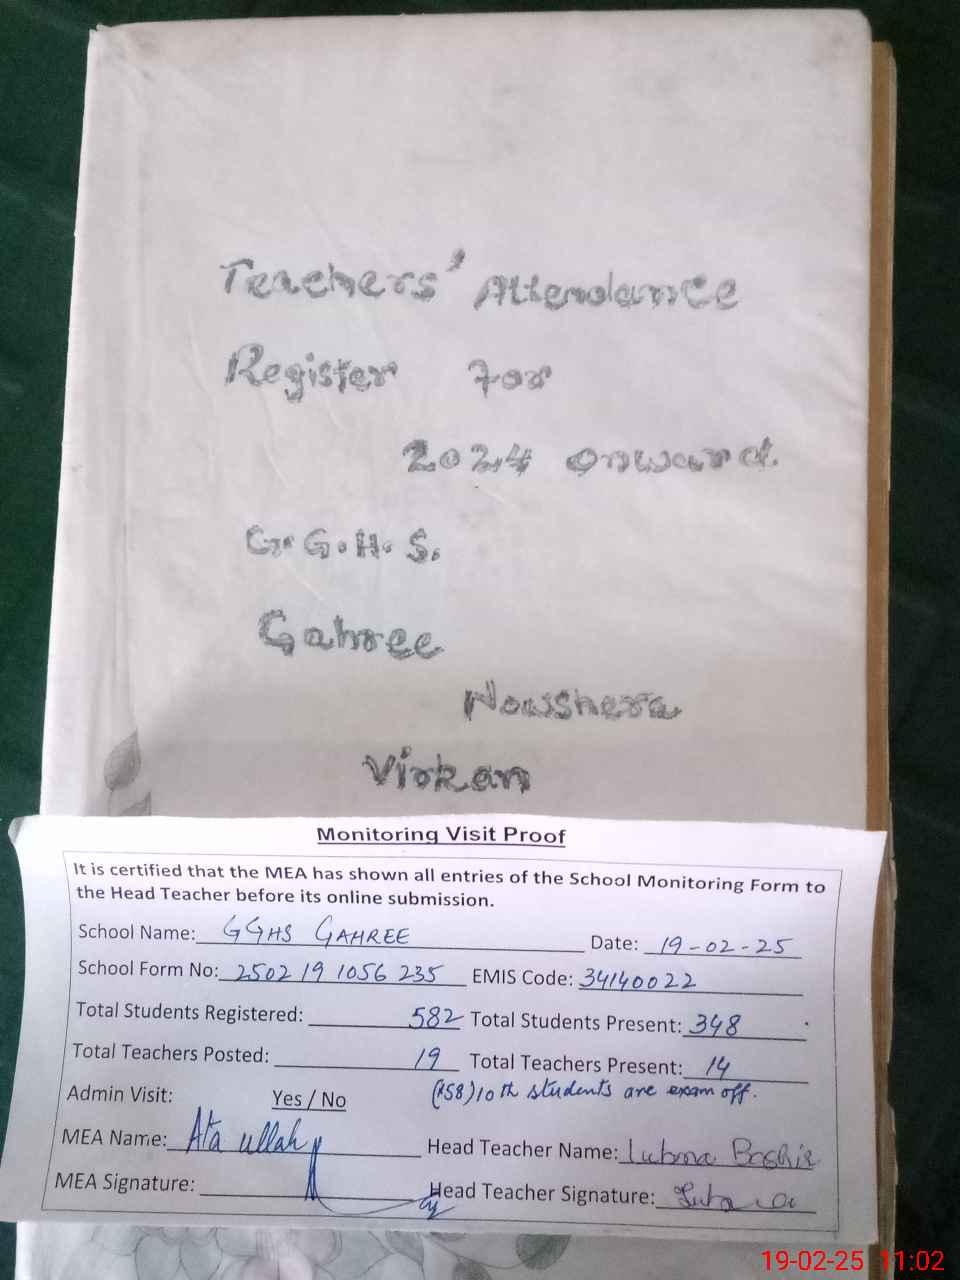 Teachers' Attendance
Register For
2024 onward.
G.G.H.S.
Gahree
Nowshera
Virkan
Monitoring Visit Proof
It is certified that the MEA has shown all entries of the School Monitoring Form to
the Head Teacher before its online submission.
School Name: GGHS GAHREE Date: 19-02-25
School Form No: 2502 19 1056 235 EMIS Code: 34140022
Total Students Registered: 582 Total Students Present: 348
Total Teachers Posted: 19 Total Teachers Present: 14
(158) 10th students are exam off.
Admin Visit: Yes / No
MEA Name: Ata ullah Head Teacher Name: Lubna Bashir
MEA Signature: Head Teacher Signature: Lubna
19-02-25 11:02